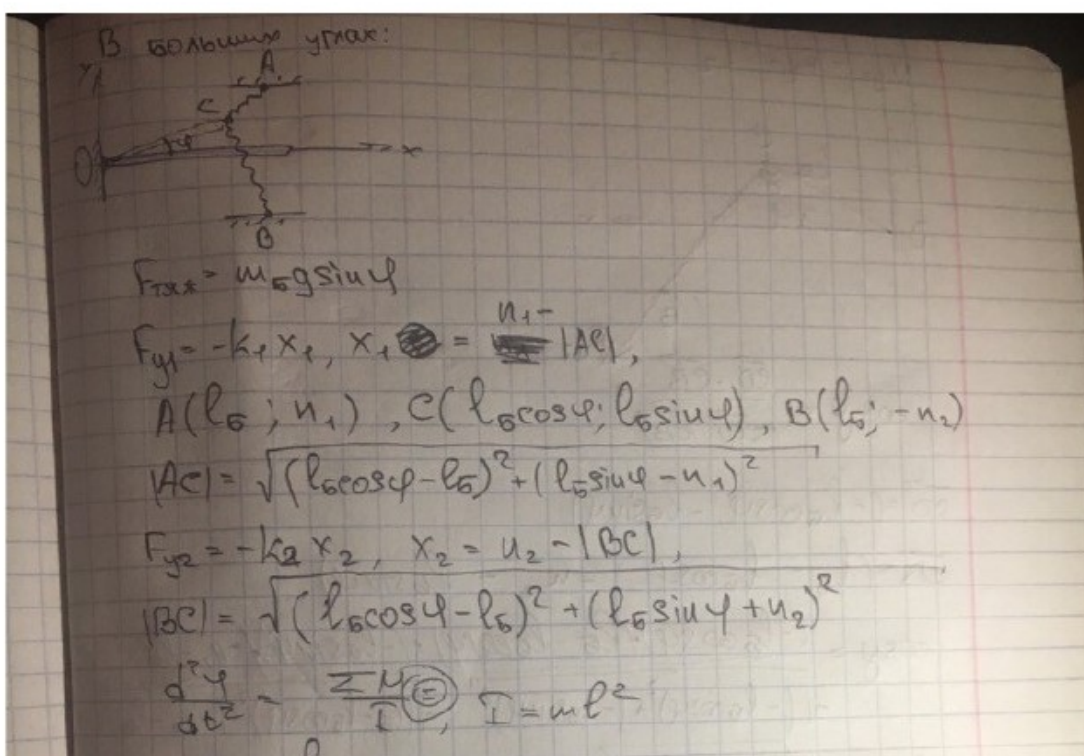 В больших углах:
y
A
C
φ
O
x
B
Fтяж = m₅gsinφ
Fу₁ = -k₁x₁, x₁ = n₁ - |AC|,
A(l₅; n₁), C(l₅cosφ; l₅sinφ), B(l₅; -n₂)
|AC| = √((l₅cosφ - l₅)² + (l₅sinφ - n₁)²)
Fу₂ = -k₂x₂, x₂ = n₂ - |BC|,
|BC| = √((l₅cosφ - l₅)² + (l₅sinφ + n₂)²)
d²φ/dt² = ΣM/I ⊜, I = ml²